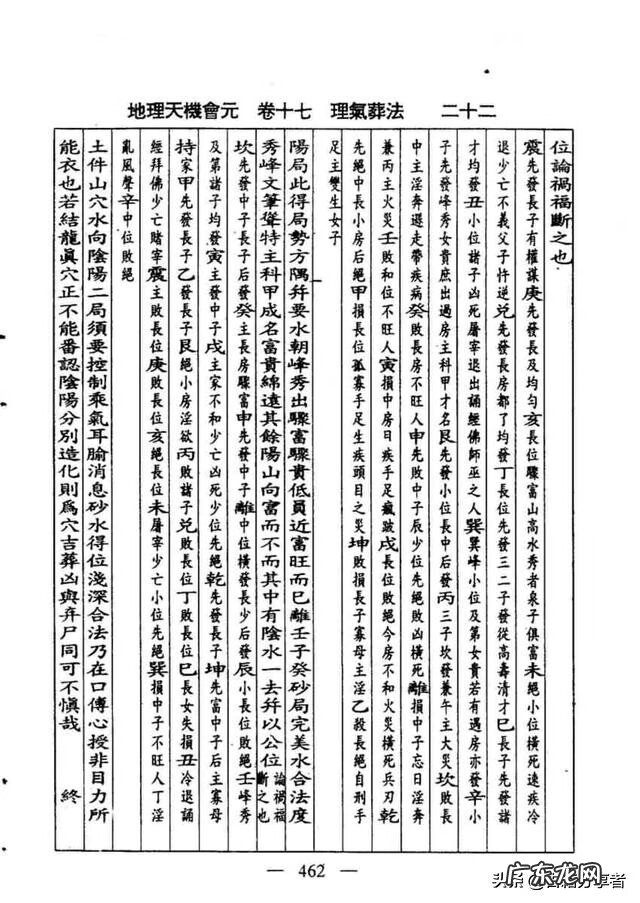 地理天機會元 卷十七 理氣葬法 二十二
位論禍福斷之也
震先發長子有權謀庚先發長及均勻亥長位驟富山高水秀者泉子俱富未絕小位橫死速疾冷
退少亡不義父子忤逆兌先發長房都了均發丁長位先發三二子發從高壽清才巳長子先發諸
才均發丑小位諸子凶死屠宰退出誦經佛師巫之人巽巽峰小位及第女貴若有遇房亦發辛小
子先發峰秀女貴庶出過房主科甲才名艮先發小位長中后發丙三子坎發兼午主大災坎敗長
中主淫奔遯走帶疾病癸敗長房不旺人申先敗中子辰少位先絕敗凶橫死離損中子忘日淫奔
兼丙主火災壬敗和位不旺人寅損中房日疾手足瘋跛戌長位敗絕今房不和火災橫死兵刃乾
先絕中長小房后絕甲損長位孤寡手足生疾頭目之災坤敗損長子寡母主淫乙殺長絕自刑手
足主雙生女子
陽局此得局勢方隅幷要水朝峰秀出驟富驟貴低員近富旺而巳離壬子癸砂局完美水合法度
秀峰文筆聳特主科甲成名富貴綿遠其餘陽山向富而不而其中有陰水一去幷以公位論禍福斷之也
坎先發中子長子后發癸主長房驟富申先發中子離中位橫發長少后發辰小長位敗絕壬峰秀
及第諸子均發寅主發中子戌主家不和少亡凶死少位先絕乾先發長子坤先富中子后主寡母
持家甲先發長子乙發長子艮絕小房淫欲丙敗諸子兌敗長位丁敗長位巳長女失損丑冷退誦
經拜佛少亡賭宰震主敗長位庚敗長位亥絕長位未屠宰少亡小位先絕巽損中子不旺人丁淫
亂風聲辛中位敗絕
土件山穴水向陰陽二局須要控制乘氣耳腧消息砂水得位淺深合法乃在口傳心授非目力所
能衣也若結龍眞穴正不能番認陰陽分別造化則爲穴吉葬凶與弃尸同可不愼哉 終
— 462 —